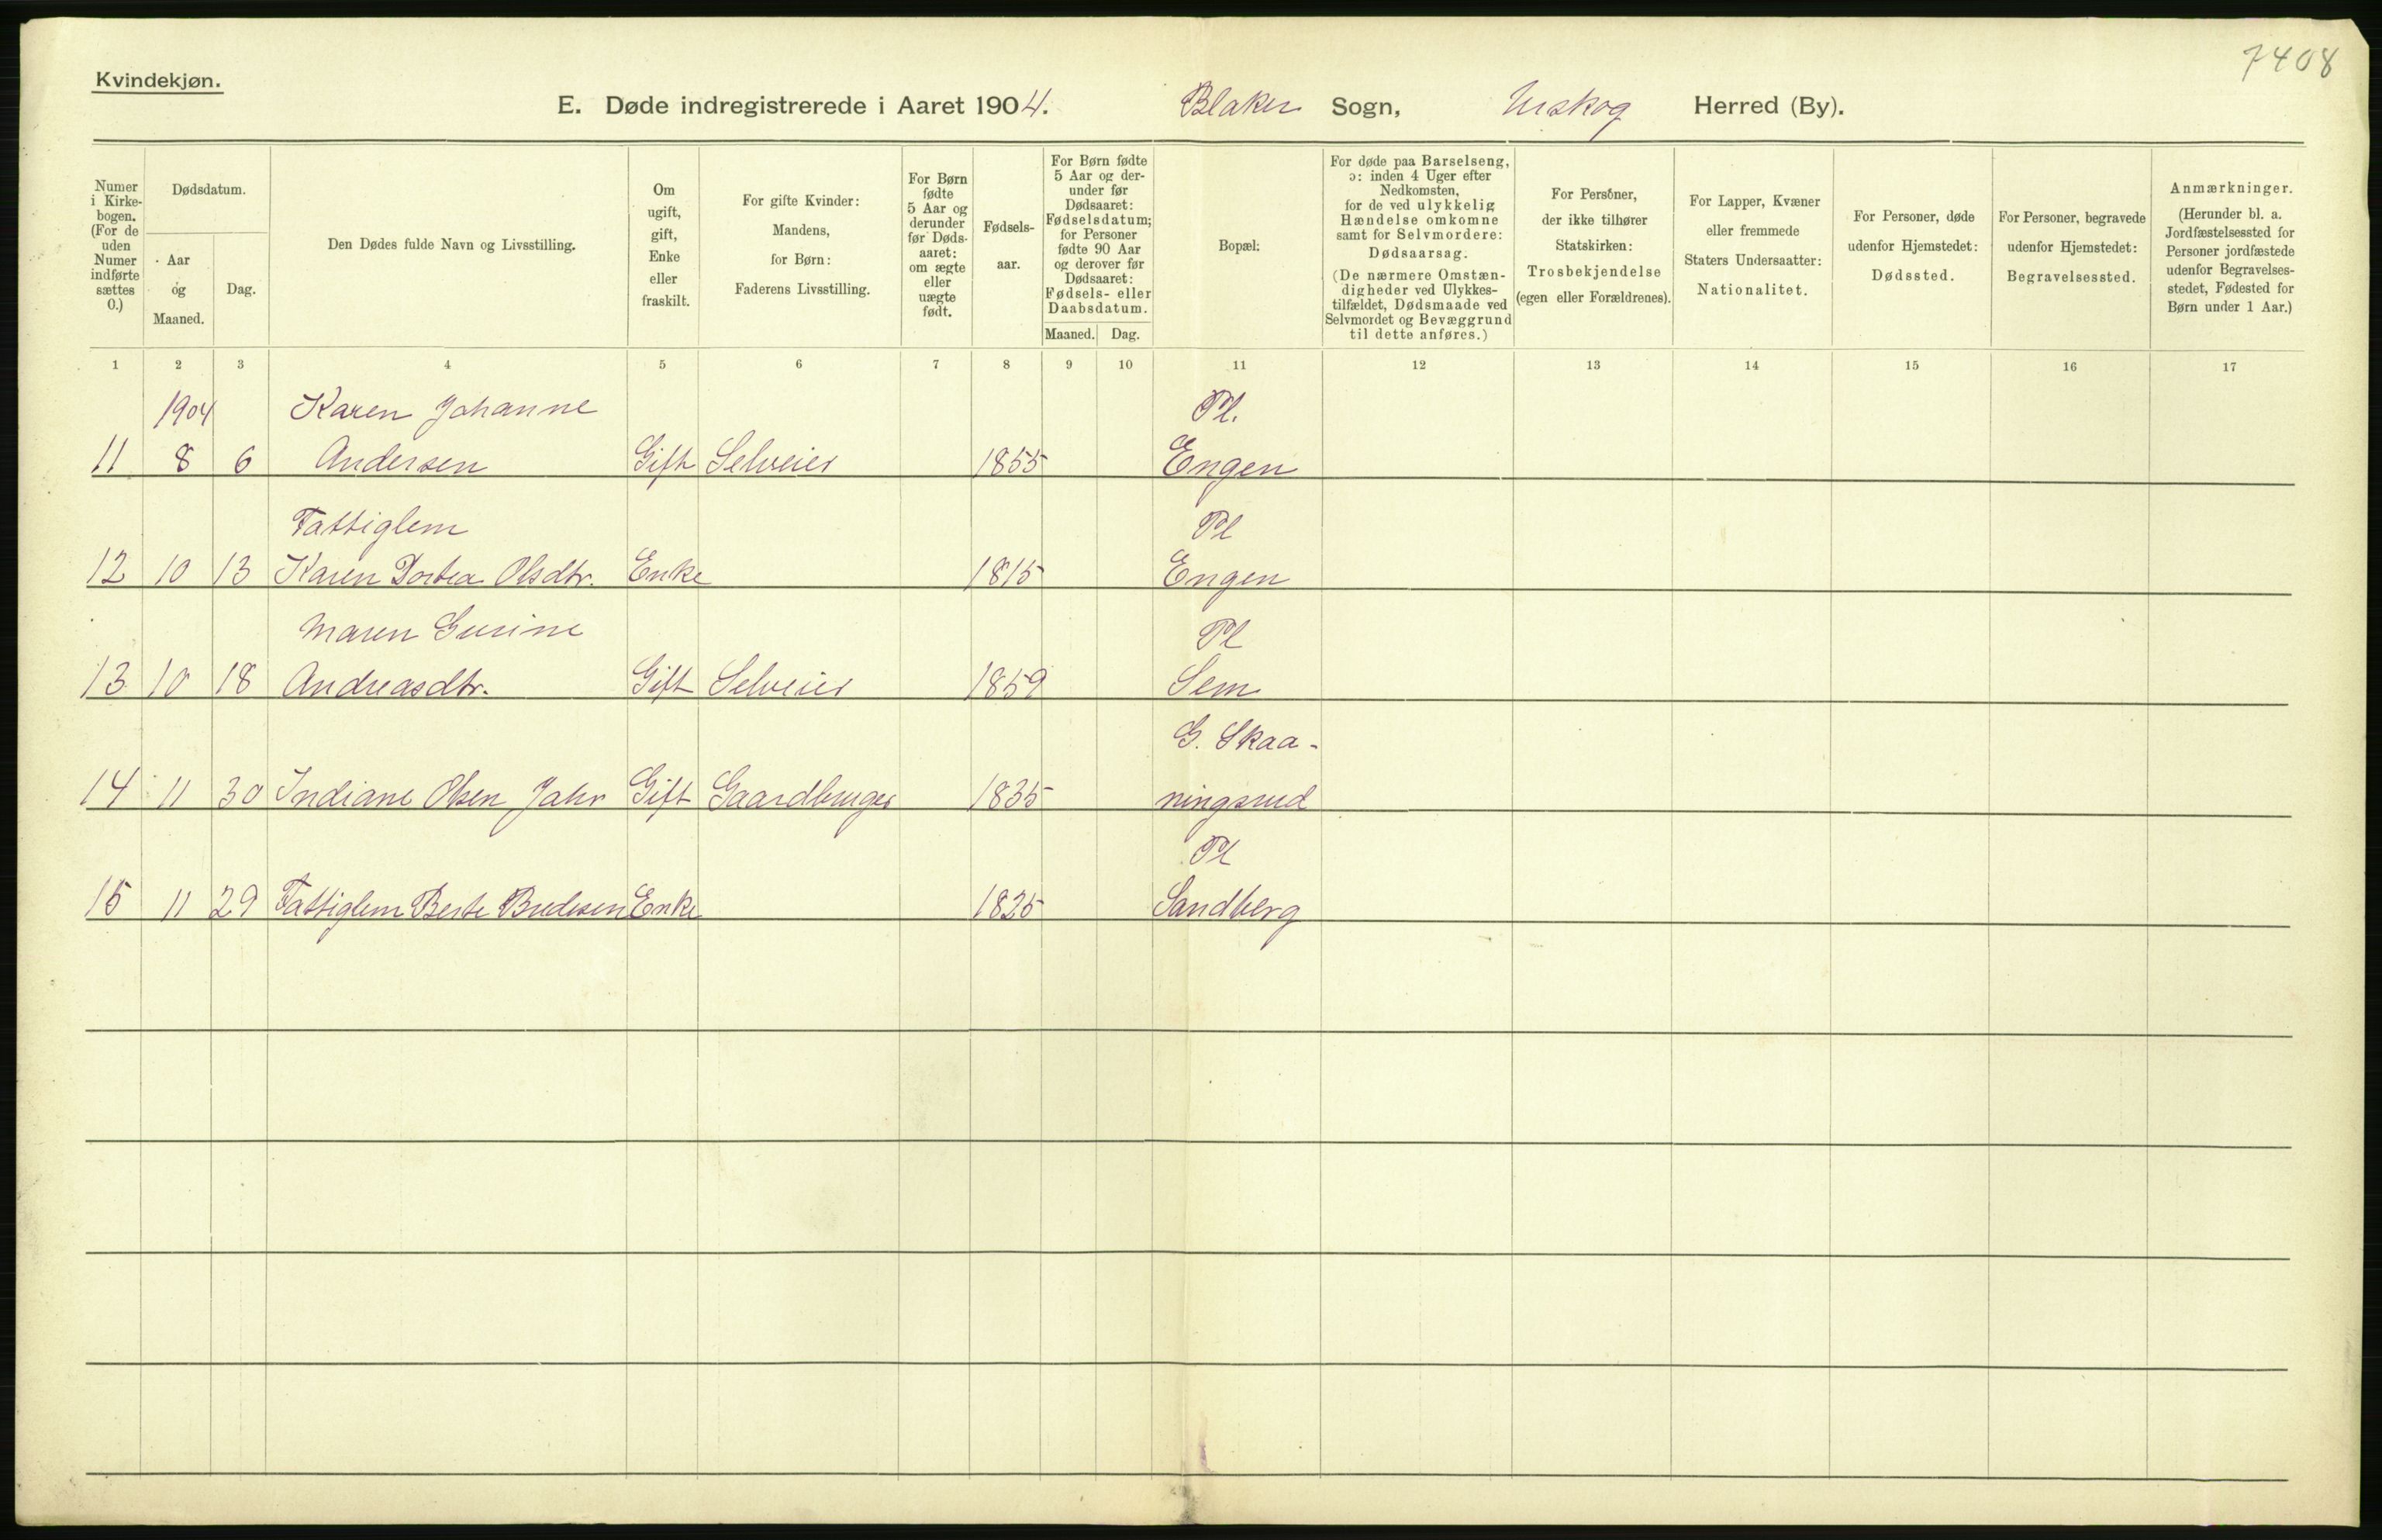 7408
Kvindekjøn.
E. Døde indregistrerede i Aaret 1904. Blaker Sogn, Urskog Herred (By).
Numer i Kirkebogen. (For de uden Numer indførte sættes 0.)
Dødsdatum.
Aar og Maaned.
Dag.
Den Dødes fulde Navn og Livsstilling.
Om ugift, gift, Enke eller fraskilt.
For gifte Kvinder: Mandens, for Børn: Faderens Livsstilling.
For Børn fødte 5 Aar og derunder før Dødsaaret: om ægte eller uægte født.
Fødselsaar.
For Børn fødte 5 Aar og derunder før Dødsaaret: Fødselsdatum; for Personer fødte 90 Aar og derover før Dødsaaret: Fødsels- eller Daabsdatum.
Maaned. Dag.
Bopæl:
For døde paa Barselseng, ɔ: inden 4 Uger efter Nedkomsten, for de ved ulykkelig Hændelse omkomne samt for Selvmordere: Dødsaarsag. (De nærmere Omstændigheder ved Ulykkestilfældet, Dødsmaade ved Selvmordet og Bevæggrund til dette anføres.)
For Personer, der ikke tilhører Statskirken: Trosbekjendelse (egen eller Forældrenes).
For Lapper, Kvæner eller fremmede Staters Undersaatter: Nationalitet.
For Personer, døde udenfor Hjemstedet: Dødssted.
For Personer, begravede udenfor Hjemstedet: Begravelsessted.
Anmærkninger. (Herunder bl. a. Jordfæstelsessted for Personer jordfæstede udenfor Begravelsesstedet, Fødested for Børn under 1 Aar.)
1 2 3 4 5 6 7 8 9 10 11 12 13 14 15 16 17
1904 Karen Johanne Pl.
11 8 6 Andersen Gift Selveier 1855 Engen
Fattiglem Pl
12 10 13 Karen Dortea Olsdtr. Enke 1815 Engen
Maren Gurine Pl
13 10 18 Andreasdtr. Gift Selveier 1859 Sem
G. Skaa-
14 11 30 Indiane Olsen Jahr Gift Gaardbruger 1835 ningsrud
Pl
15 11 29 Fattiglem Berte Bredesen Enke 1825 Sandberg